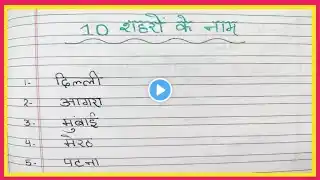 10 शहरो के नाम
1- दिल्ली
2- आगरा
3- मुंबाई
4- मेरठ
5- पटना